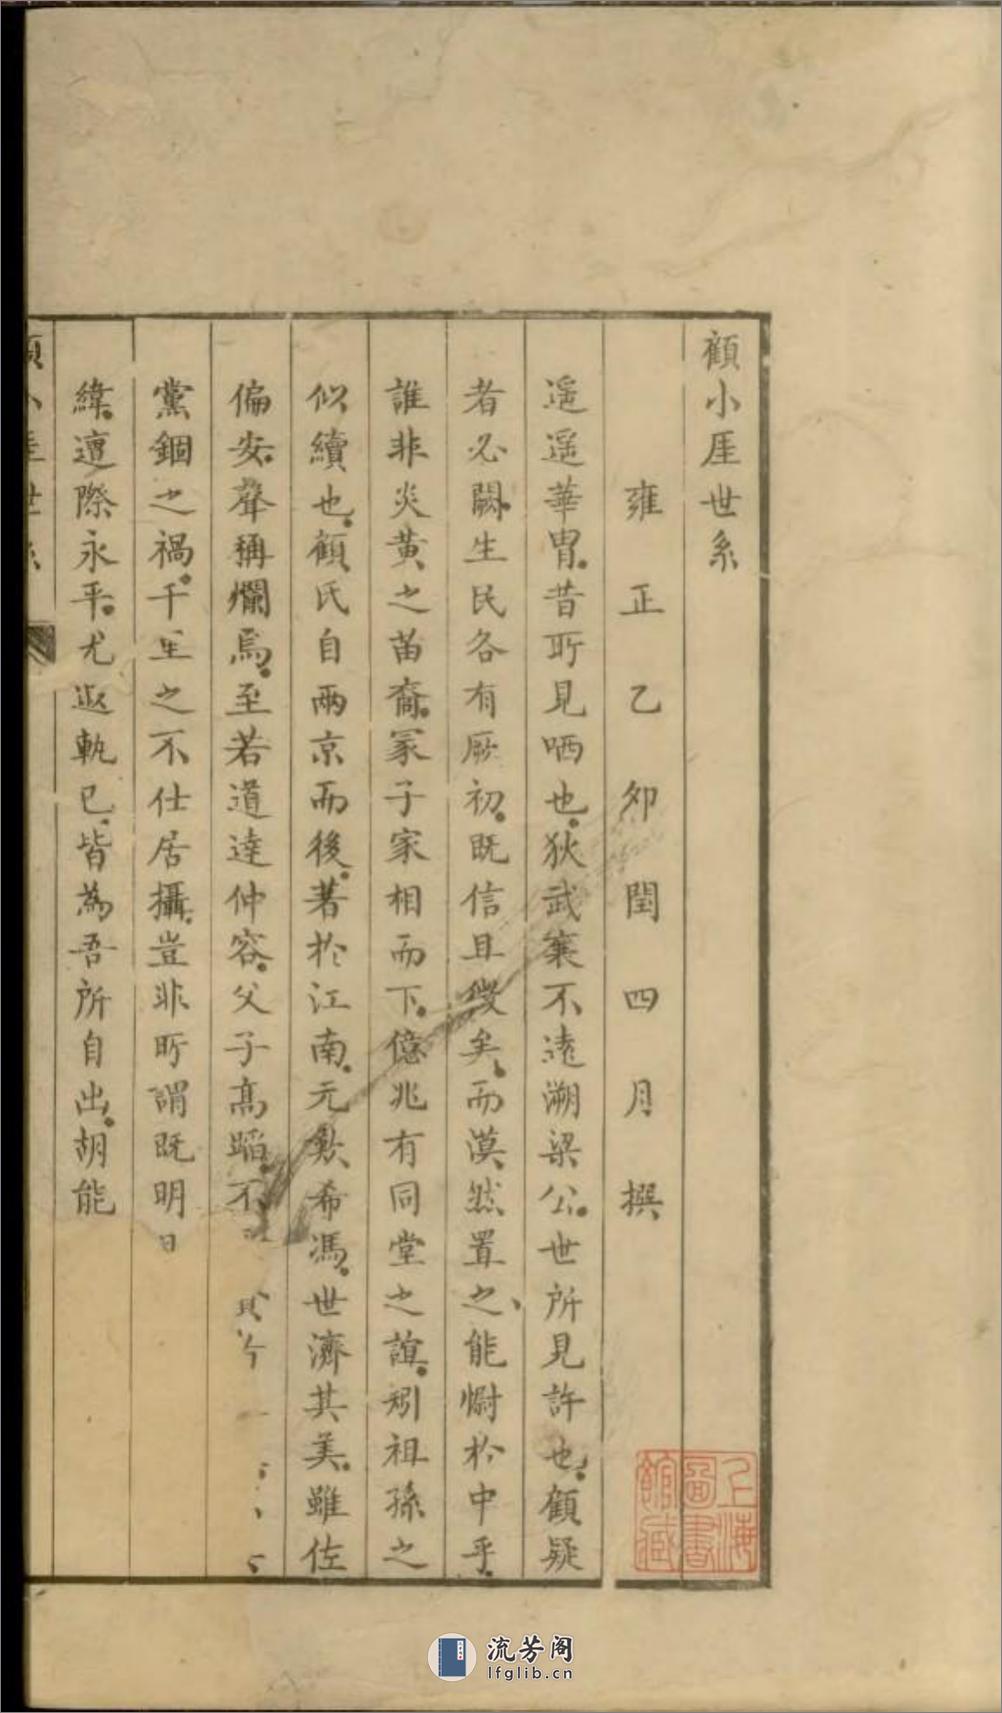 顧小厓世系
雍正乙卯閏四月撰
遥遥華胄昔所見哂也狄武襄不遠溯梁公世所見許也顧疑
者必闕生民各有厥初既信且徴矣而漠然置之能慰於中乎
誰非炎黃之苗裔冢子家相而下億兆有同堂之誼矧祖孫之
似續也顧氏自兩京而後著於江南元歎希馮世濟其美雖佐
偏安聲稱爛焉至若道達仲容父子高蹈不
黨錮之禍千里之不仕居攝豈非所謂既明
緯邅際永平尤遐軌已皆為吾所自出胡能
上海圖書館藏
流芳阁
lfglib.cn